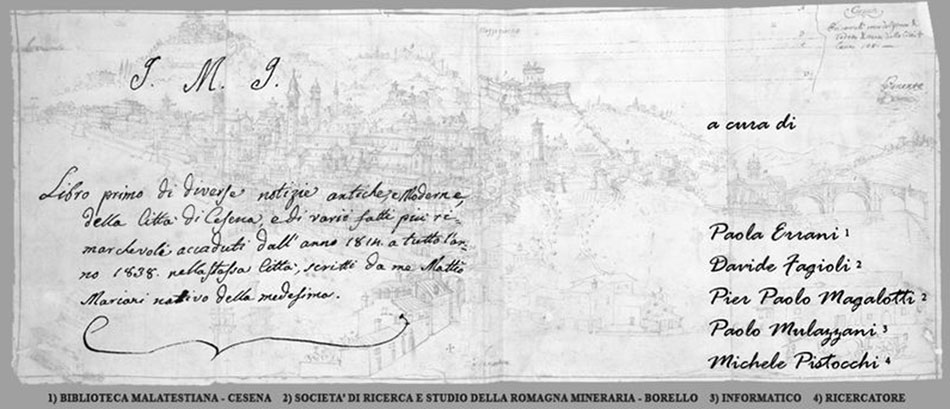 J. M. J.
Libro primo di diverse notizie antiche, e Moderne,
della Città di Cesena, e di varii fatti piui ri=
marchevoli accaduti dall'anno 1814. a tutto l'an=
no 1838. nella stessa Città, scritti da me Mattia
Mariani nativo della medesima.
a cura di
Paola Errani 1
Davide Fagioli 2
Pier Paolo Magalotti 2
Paolo Mulazzani 3
Michele Pistocchi 4
1) BIBLIOTECA MALATESTIANA - CESENA 2) SOCIETA' DI RICERCA E STUDIO DELLA ROMAGNA MINERARIA - BORELLO 3) INFORMATICO 4) RICERCATORE